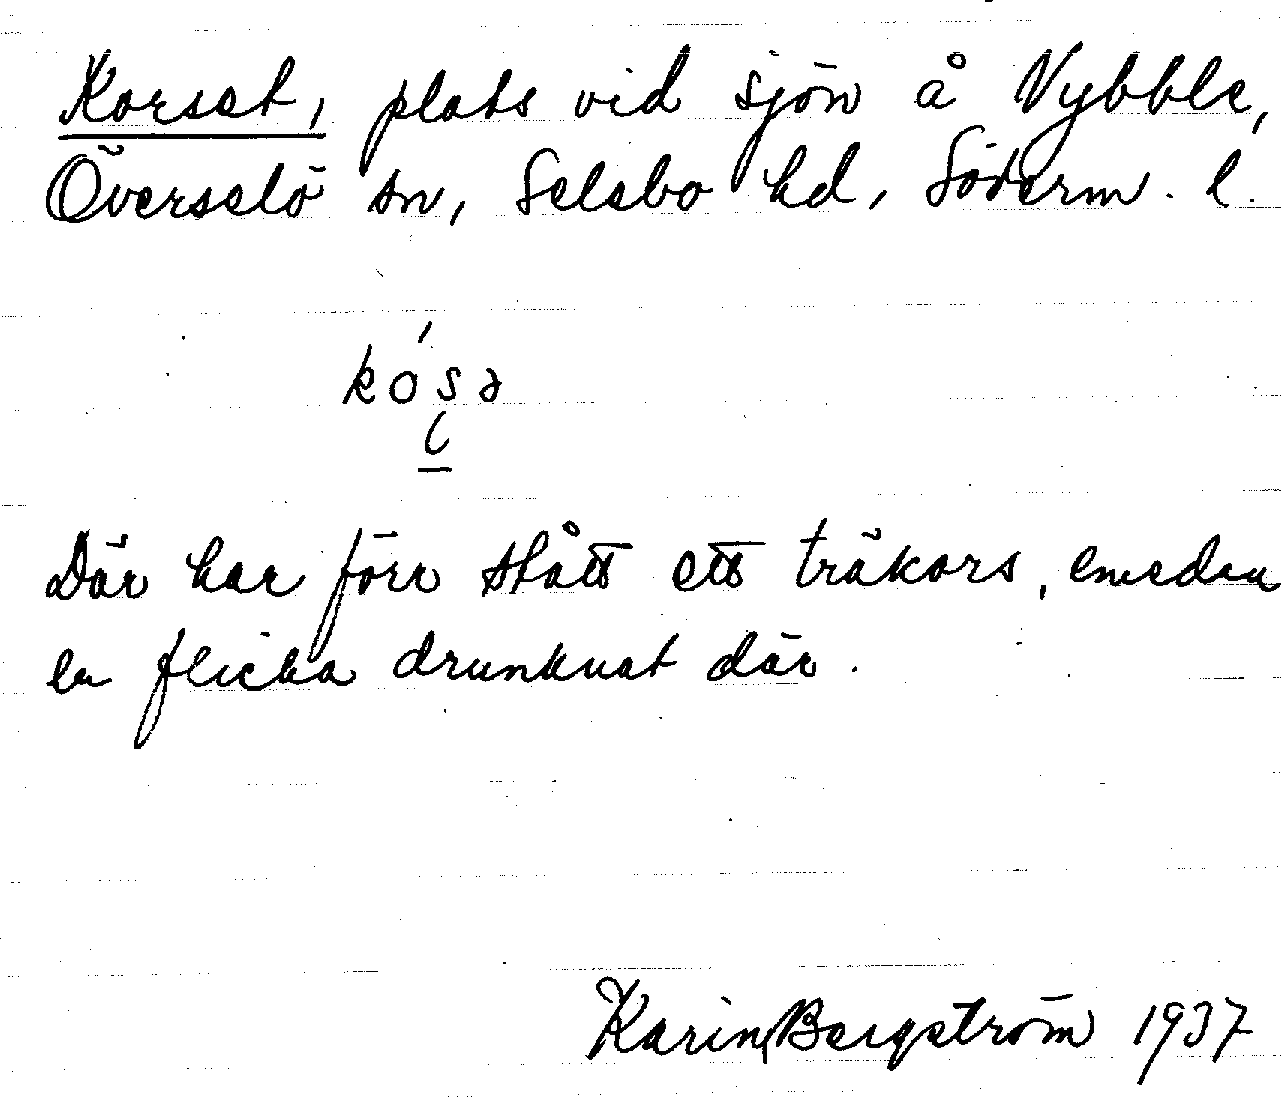 Korset, plats vid sjön å Vybble,
Överselö sn, Selebo hd, Söderm. l.
kós̨ə
Där har förr stått ett träkors, emedan
en flicka drunknat där.
Karin Bergström 1937